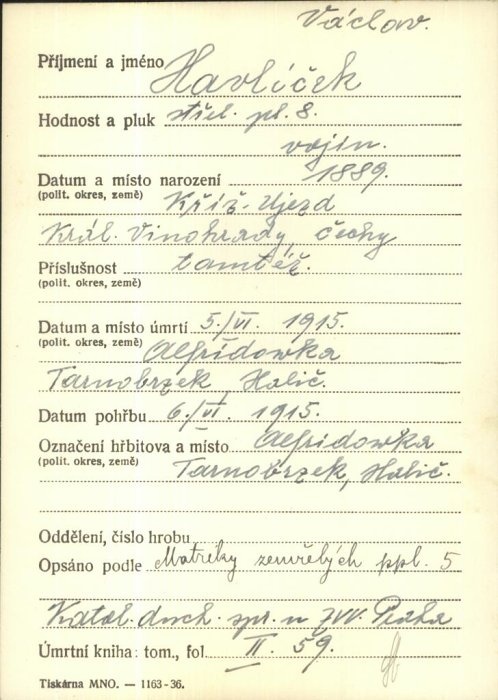 Václav.
Příjmení a jméno Havlíček
Hodnost a pluk střel. pl. 8.
vojín.
Datum a místo narození 1889.
(polit. okres, země) Kříž. Újezd
Král. Vinohrady, Čechy
Příslušnost tamtéž.
(polit. okres, země)
Datum a místo úmrtí 5./VI. 1915.
(polit. okres, země) Alfridowka
Tarnobrzek, Halič.
Datum pohřbu 6./VI. 1915.
Označení hřbitova a místo Alfridowka
(polit. okres, země) Tarnobrzek, Halič.
Oddělení, číslo hrobu
Opsáno podle Matriky zemřelých ppl. 5
Katol. duch. spr. u ZVV. Praha
Úmrtní kniha: tom., fol. II. 59.
Tiskárna MNO. — 1163-36.